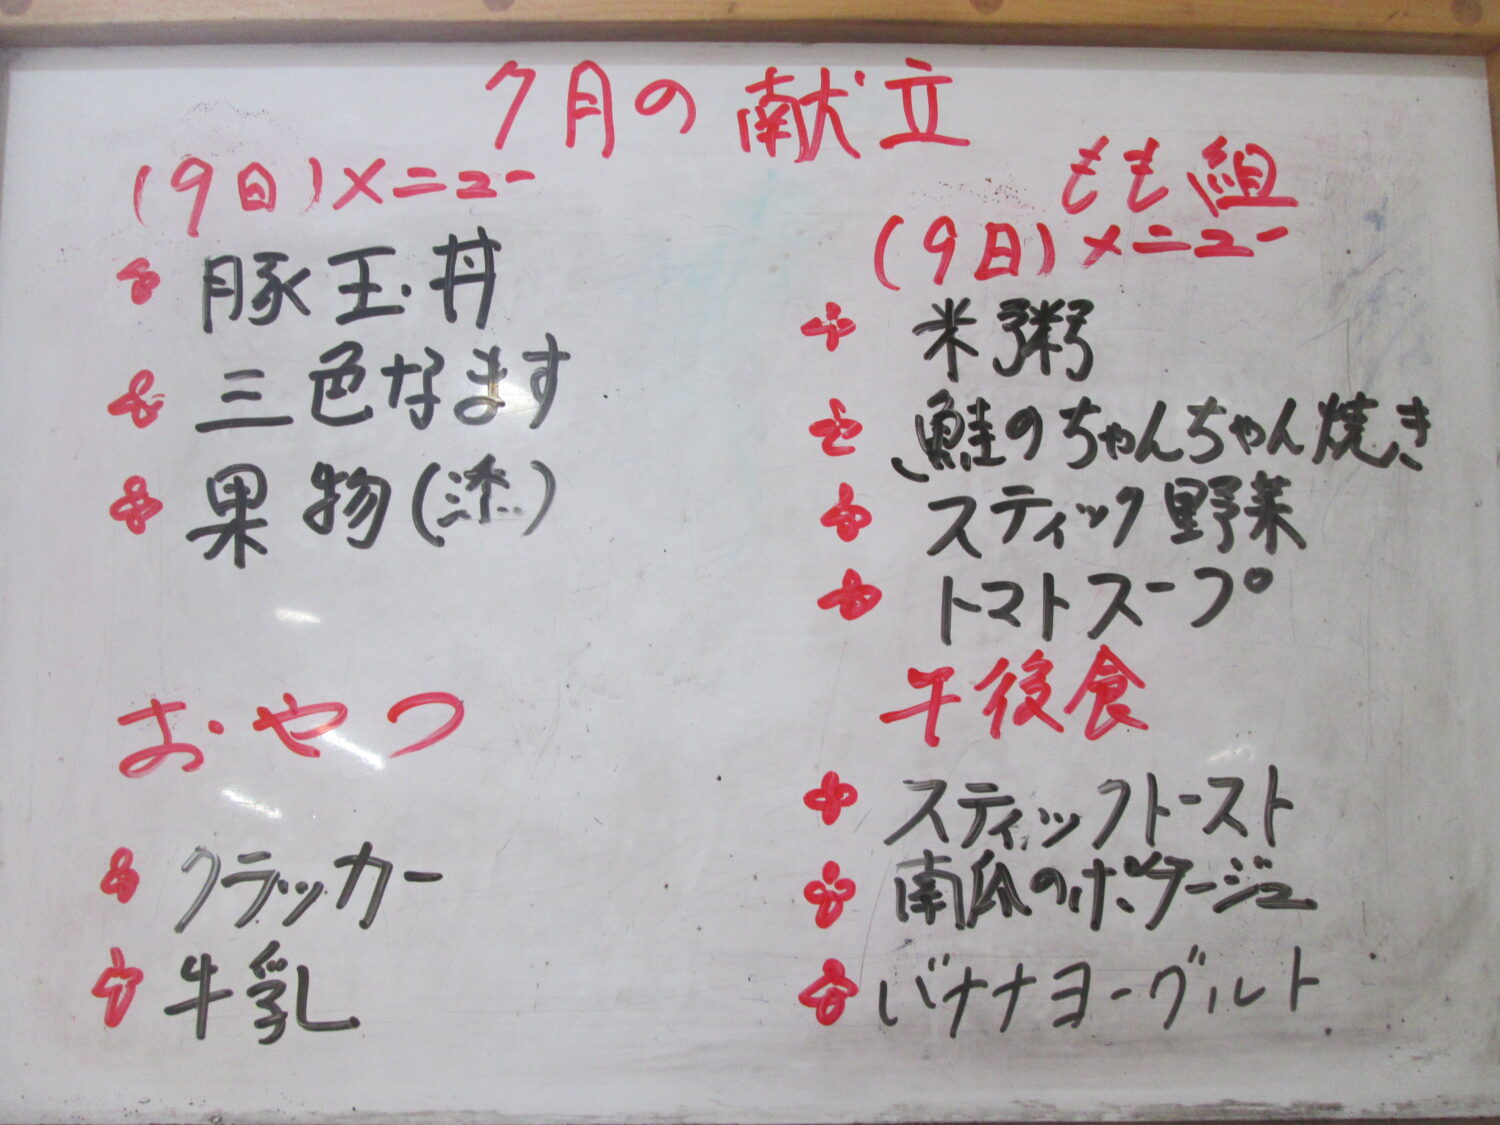 7月の献立
(9日)メニュー
豚玉丼
三色なます
果物(添)
おやつ
クラッカー
牛乳
もも組
(9日)メニュー
米粥
鮭のちゃんちゃん焼き
スティック野菜
トマトスープ
午後食
スティックトースト
南瓜のポタージュ
バナナヨーグルト